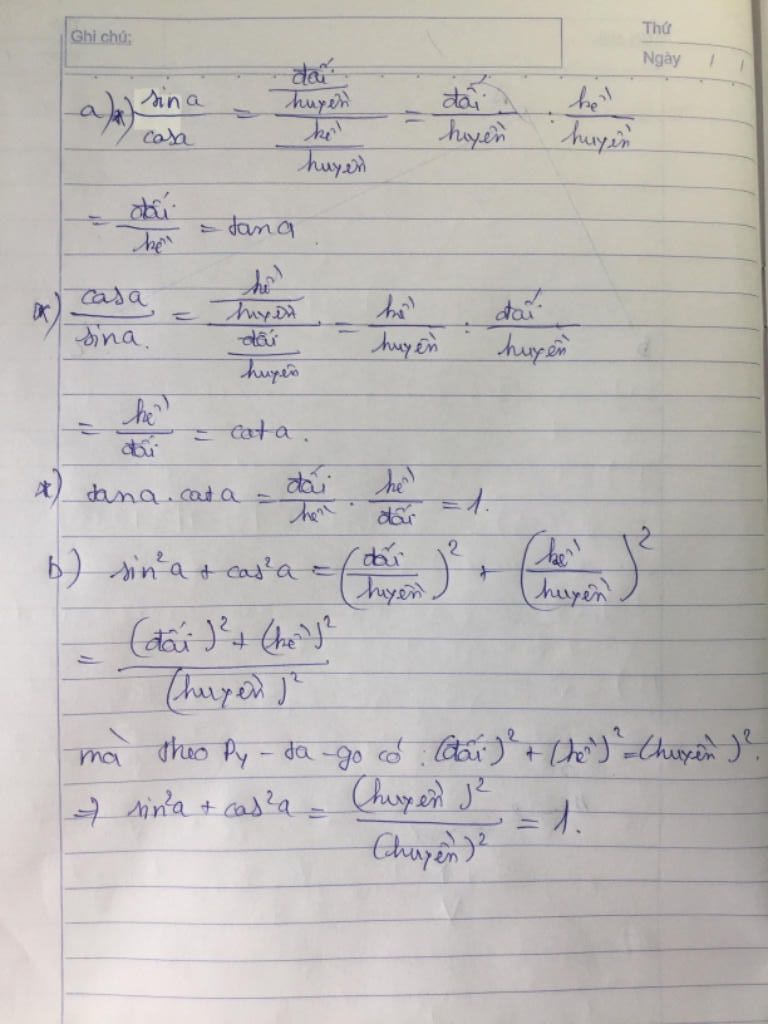 Ghi chú:
Thứ
Ngày / /
a) *) sina/cosa = (đối/huyền)/(kề/huyền) = đối/huyền : kề/huyền
= đối/kề = tana.
*) cosa/sina. = (kề/huyền)/(đối/huyền) = kề/huyền : đối/huyền
= kề/đối = cota.
*) tana.cota = đối/kề . kề/đối = 1.
b) sin²a + cos²a = (đối/huyền)² + (kề/huyền)²
= ((đối)² + (kề)²)/(huyền)²
mà theo Py-ta-go có : (đối)² + (kề)² = (huyền)².
=> sin²a + cos²a = (huyền)²/(huyền)² = 1.